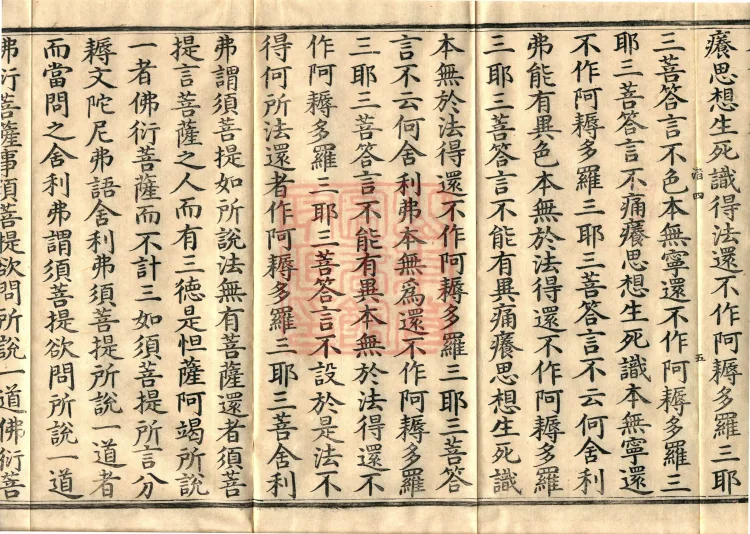 癢思想生死識得法還不作阿耨多羅三耶
三菩答言不色本無寧還不作阿耨多羅三
耶三菩答言不痛癢思想生死識本無寧還
不作阿耨多羅三耶三菩答言不云何舍利
弗能有異色本無於法得還不作阿耨多羅
三耶三菩答言不能有異痛癢思想生死識
本無於法得還不作阿耨多羅三耶三菩答
言不云何舍利弗本無為還不作阿耨多羅
三耶三菩答言不能有異本無於法得還不
作阿耨多羅三耶三菩答言不設於是法不
得何所法還者作阿耨多羅三耶三菩舍利
弗謂須菩提如所說法無有菩薩還者須菩
提言菩薩之人而有三德是怛薩阿竭所說
一者佛衍菩薩而不計三如須菩提所言分
耨文陀尼弗語舍利弗須菩提所說一道者
而當問之舍利弗謂須菩提欲問所說一道
弗衍菩薩事須菩提欲問所說一道佛衍菩
四
五